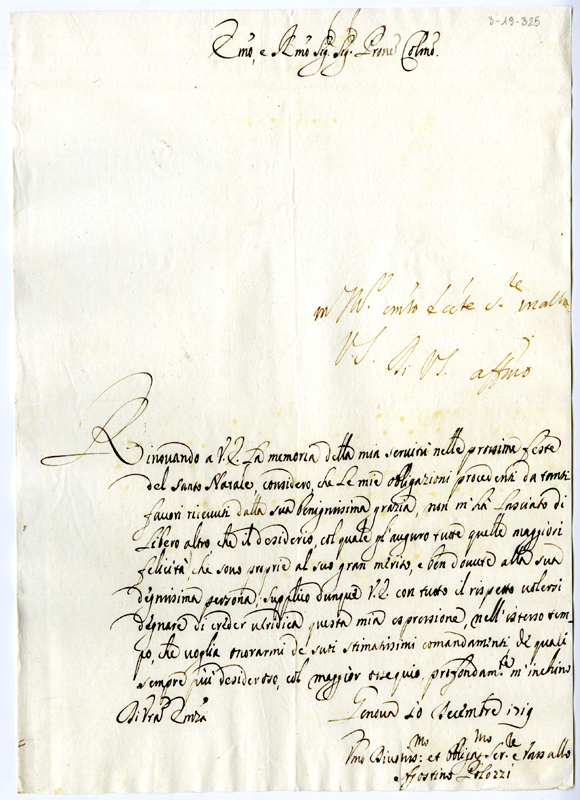 3-19-325
Emo, e Rmo Sig. Sig. Prone Colmo.
V.S. Di VS. affmo
Rinouando a V.E. la memoria della mia seruitù nelle prossime feste
del Santo Natale, considero, che le mie obligazioni procedenti da tanti
fauori riceuuti dalla sua benignissima grazia, non m'hà lasciato di
libero altro che il desiderio, col quale gl'auguro tutte quelle maggiori
felicità, che sono proprie al suo gran merito, e ben douute alla sua
degnissima persona; supplico dunque V.E. con tutto il rispetto uolersi
degnare di creder ueridica questa mia espressione, nell'istesso tem-
po, che uoglia onorarmi de suoi stimatissimi comandamenti de quali
sempre più desideroso, col maggior ossequio, profondamte. m'inchino
Di Vra. Emza.
Genoua 20 Decembre 1719
Vmo Diuotismo: et obligmo Serre. e Vassallo
Agostino